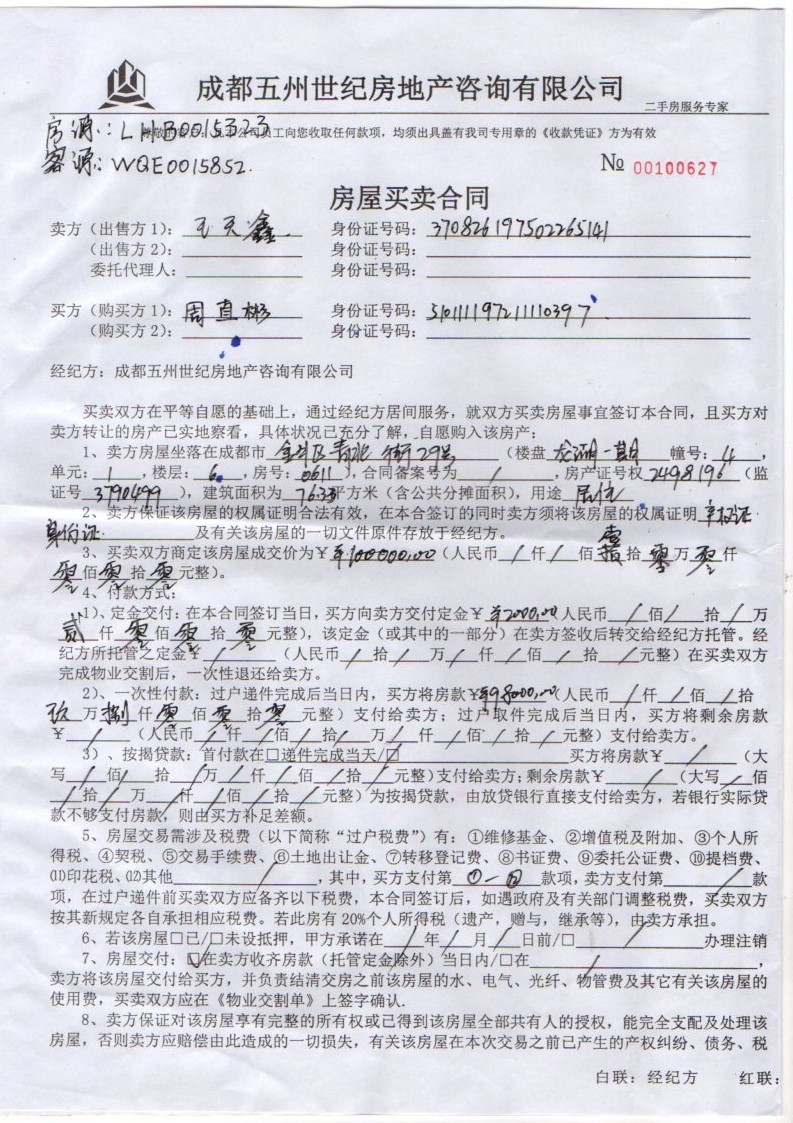 成都五州世纪房地产咨询有限公司
二手房服务专家
房源：LHB0015323
司员工向您收取任何款项，均须出具盖有我司专用章的《收款凭证》方为有效
客源：WQE0015852.
№ 00100627
房屋买卖合同
卖方（出售方1）：王天鑫 身份证号码：370826197502265141
（出售方2）： 身份证号码：
委托代理人： 身份证号码：
买方（购买方1）：周直彬 身份证号码：510111197211110397
（购买方2）： 身份证号码：
经纪方：成都五州世纪房地产咨询有限公司
买卖双方在平等自愿的基础上，通过经纪方居间服务，就双方买卖房屋事宜签订本合同，且买方对
卖方转让的房产已实地察看，具体状况已充分了解，自愿购入该房产：
1、卖方房屋坐落在成都市 金牛区青北街29号 （楼盘 龙湖一期 幢号：4，
单元：1，楼层：6，房号：0611），合同备案号为 / ，房产证号权 2498196（监
证号 3790499），建筑面积为 平方米（含公共分摊面积），用途 居住
2、卖方保证该房屋的权属证明合法有效，在本合签订的同时卖方须将该房屋的权属证明
身份证 及有关该房屋的一切文件原件存放于经纪方。
3、买卖双方商定该房屋成交价为￥ ¥100000.00（人民币 / 仟 / 佰 壹 拾 零 万 零 仟
零 佰 零 拾 零 元整）。
4、付款方式：
1）、定金交付：在本合同签订当日，买方向卖方交付定金￥ ¥2000.00 人民币 / 佰 / 拾 / 万
贰 仟 零 佰 零 拾 零 元整），该定金（或其中的一部分）在卖方签收后转交给经纪方托管。经
纪方所托管之定金￥ / （人民币 / 拾 / 万 / 仟 / 佰 / 拾 / 元整）在买卖双方
完成物业交割后，一次性退还给卖方。
2）、一次性付款：过户递件完成后当日内，买方将房款￥ ¥98000.00（人民币 / 仟 / 佰 / 拾
玖 万 捌 仟 零 佰 零 拾 零 元整）支付给卖方；过户取件完成后当日内，买方将剩余房款
￥ / （人民币 / 仟 / 佰 / 拾 / 万 / 仟 / 佰 / 拾 / 元整）支付给卖方。
3）、按揭贷款：首付款在□递件完成当天/☑ 买方将房款￥ / （大
写 / 佰 / 拾 / 万 / 仟 / 佰 / 拾 / 元整）支付给卖方；剩余房款￥ / （大写 / 佰
/ 拾 / 万 / 仟 / 佰 / 拾 / 元整）为按揭贷款，由放贷银行直接支付给卖方，若银行实际贷
款不够支付房款，则由买方补足差额。
5、房屋交易需涉及税费（以下简称“过户税费”）有：①维修基金、②增值税及附加、③个人所
得税、④契税、⑤交易手续费、⑥土地出让金、⑦转移登记费、⑧书证费、⑨委托公证费、⑩提档费、
⑾印花税、⑿其他 / ，其中，买方支付第 款项，卖方支付第 / 款
项，在过户递件前买卖双方应备齐以下税费，本合同签订后，如遇政府及有关部门调整税费，买卖双方
按其新规定各自承担相应税费。若此房有20%个人所得税（遗产，赠与，继承等），由卖方承担。
6、若该房屋□已/□未设抵押，甲方承诺在 / 年 / 月 / 日前/□ 办理注销
7、房屋交付：☑在卖方收齐房款（托管定金除外）当日内/□在 / ，
卖方将该房屋交付给买方，并负责结清交房之前该房屋的水、电气、光纤、物管费及其它有关该房屋的
使用费，买卖双方应在《物业交割单》上签字确认.
8、卖方保证对该房屋享有完整的所有权或已得到该房屋全部共有人的授权，能完全支配及处理该
房屋，否则卖方应赔偿由此造成的一切损失，有关该房屋在本次交易之前已产生的产权纠纷、债务、税
白联：经纪方 红联：